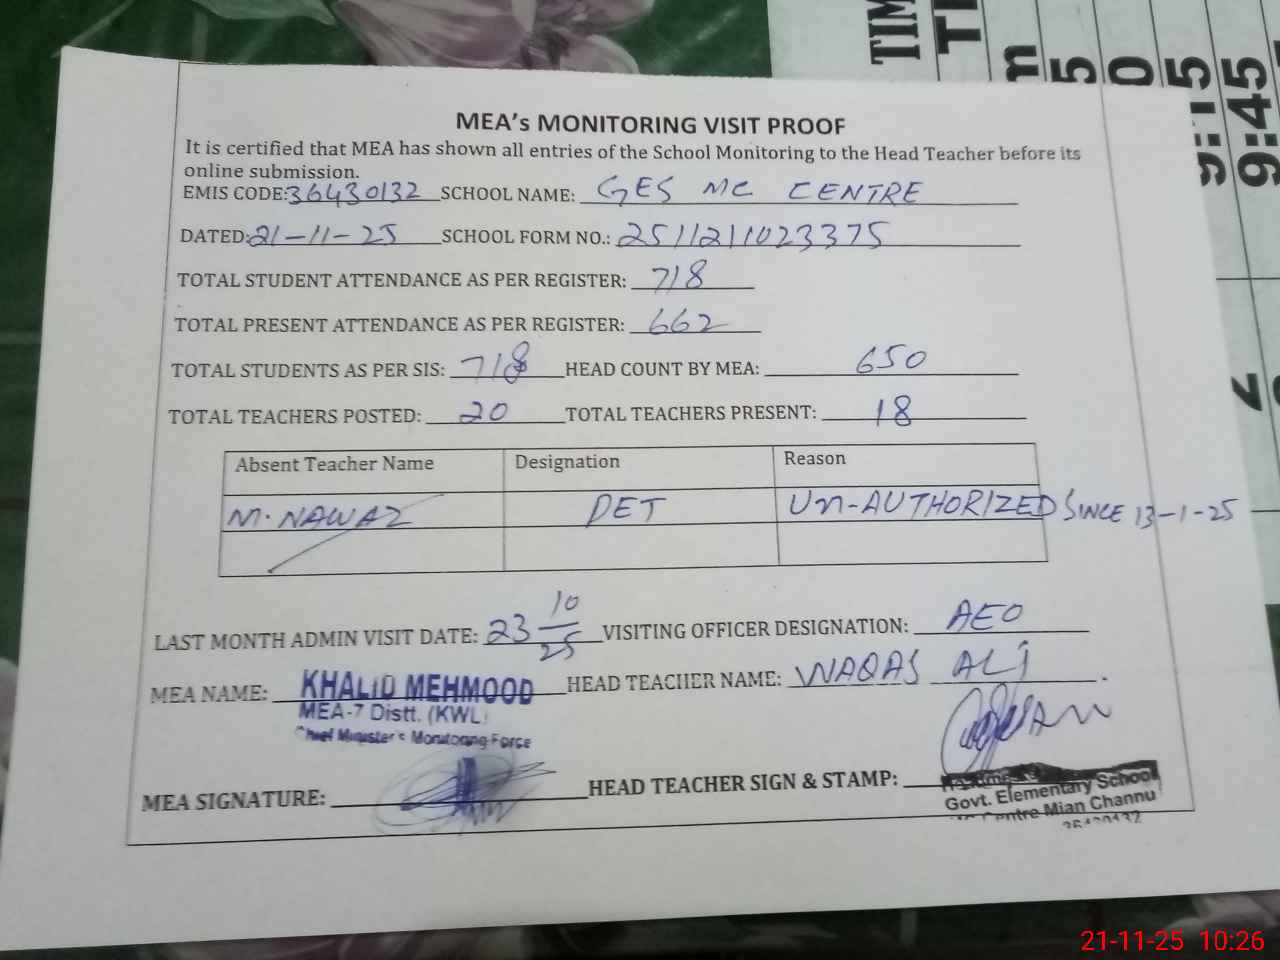 MEA's MONITORING VISIT PROOF
It is certified that MEA has shown all entries of the School Monitoring to the Head Teacher before its
online submission.
EMIS CODE: 36430132 SCHOOL NAME: GES MC CENTRE
DATED: 21-11-25 SCHOOL FORM NO.: 2511211023375
TOTAL STUDENT ATTENDANCE AS PER REGISTER: 718
TOTAL PRESENT ATTENDANCE AS PER REGISTER: 662
TOTAL STUDENTS AS PER SIS: 718 HEAD COUNT BY MEA: 650
TOTAL TEACHERS POSTED: 20 TOTAL TEACHERS PRESENT: 18
Absent Teacher Name Designation Reason
M. NAWAZ PET UN-AUTHORIZED SINCE 13-1-25
LAST MONTH ADMIN VISIT DATE: 23 10/25 VISITING OFFICER DESIGNATION: AEO
MEA NAME: KHALID MEHMOOD HEAD TEACHER NAME: WAQAS ALI
MEA-7 Distt. (KWL)
Chief Minister's Monitoring Force
MEA SIGNATURE: HEAD TEACHER SIGN & STAMP:
Govt. Elementary School
Centre Mian Channu
36430132
TIM
TI
m
5
0
9:15
9:45
21-11-25 10:26